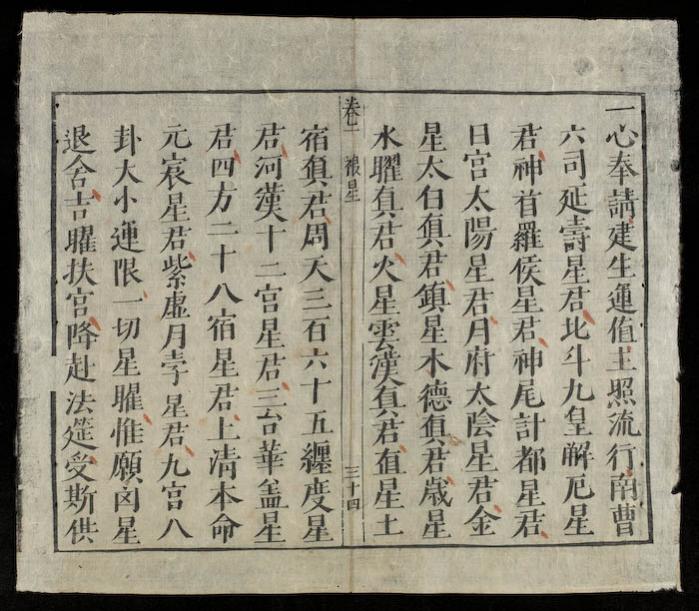 一心奉請建生運值主照流行南曹
六司延壽星君北斗九皇解厄星
君神首羅侯星君神尾計都星君
日宮太陽星君月府太陰星君金
星太白真君鎮星木德真君歲星
水曜真君火星雲漢真君值星土
卷二 禳星 三十四
宿真君周天三百六十五纏度星
君河漢十二宮星君三台華盖星
君四方二十八宿星君上清本命
元宸星君紫虛月孛星君九宮八
卦大小運限一切星曜惟願凶星
退舍吉曜扶宮降赴法筵受斯供